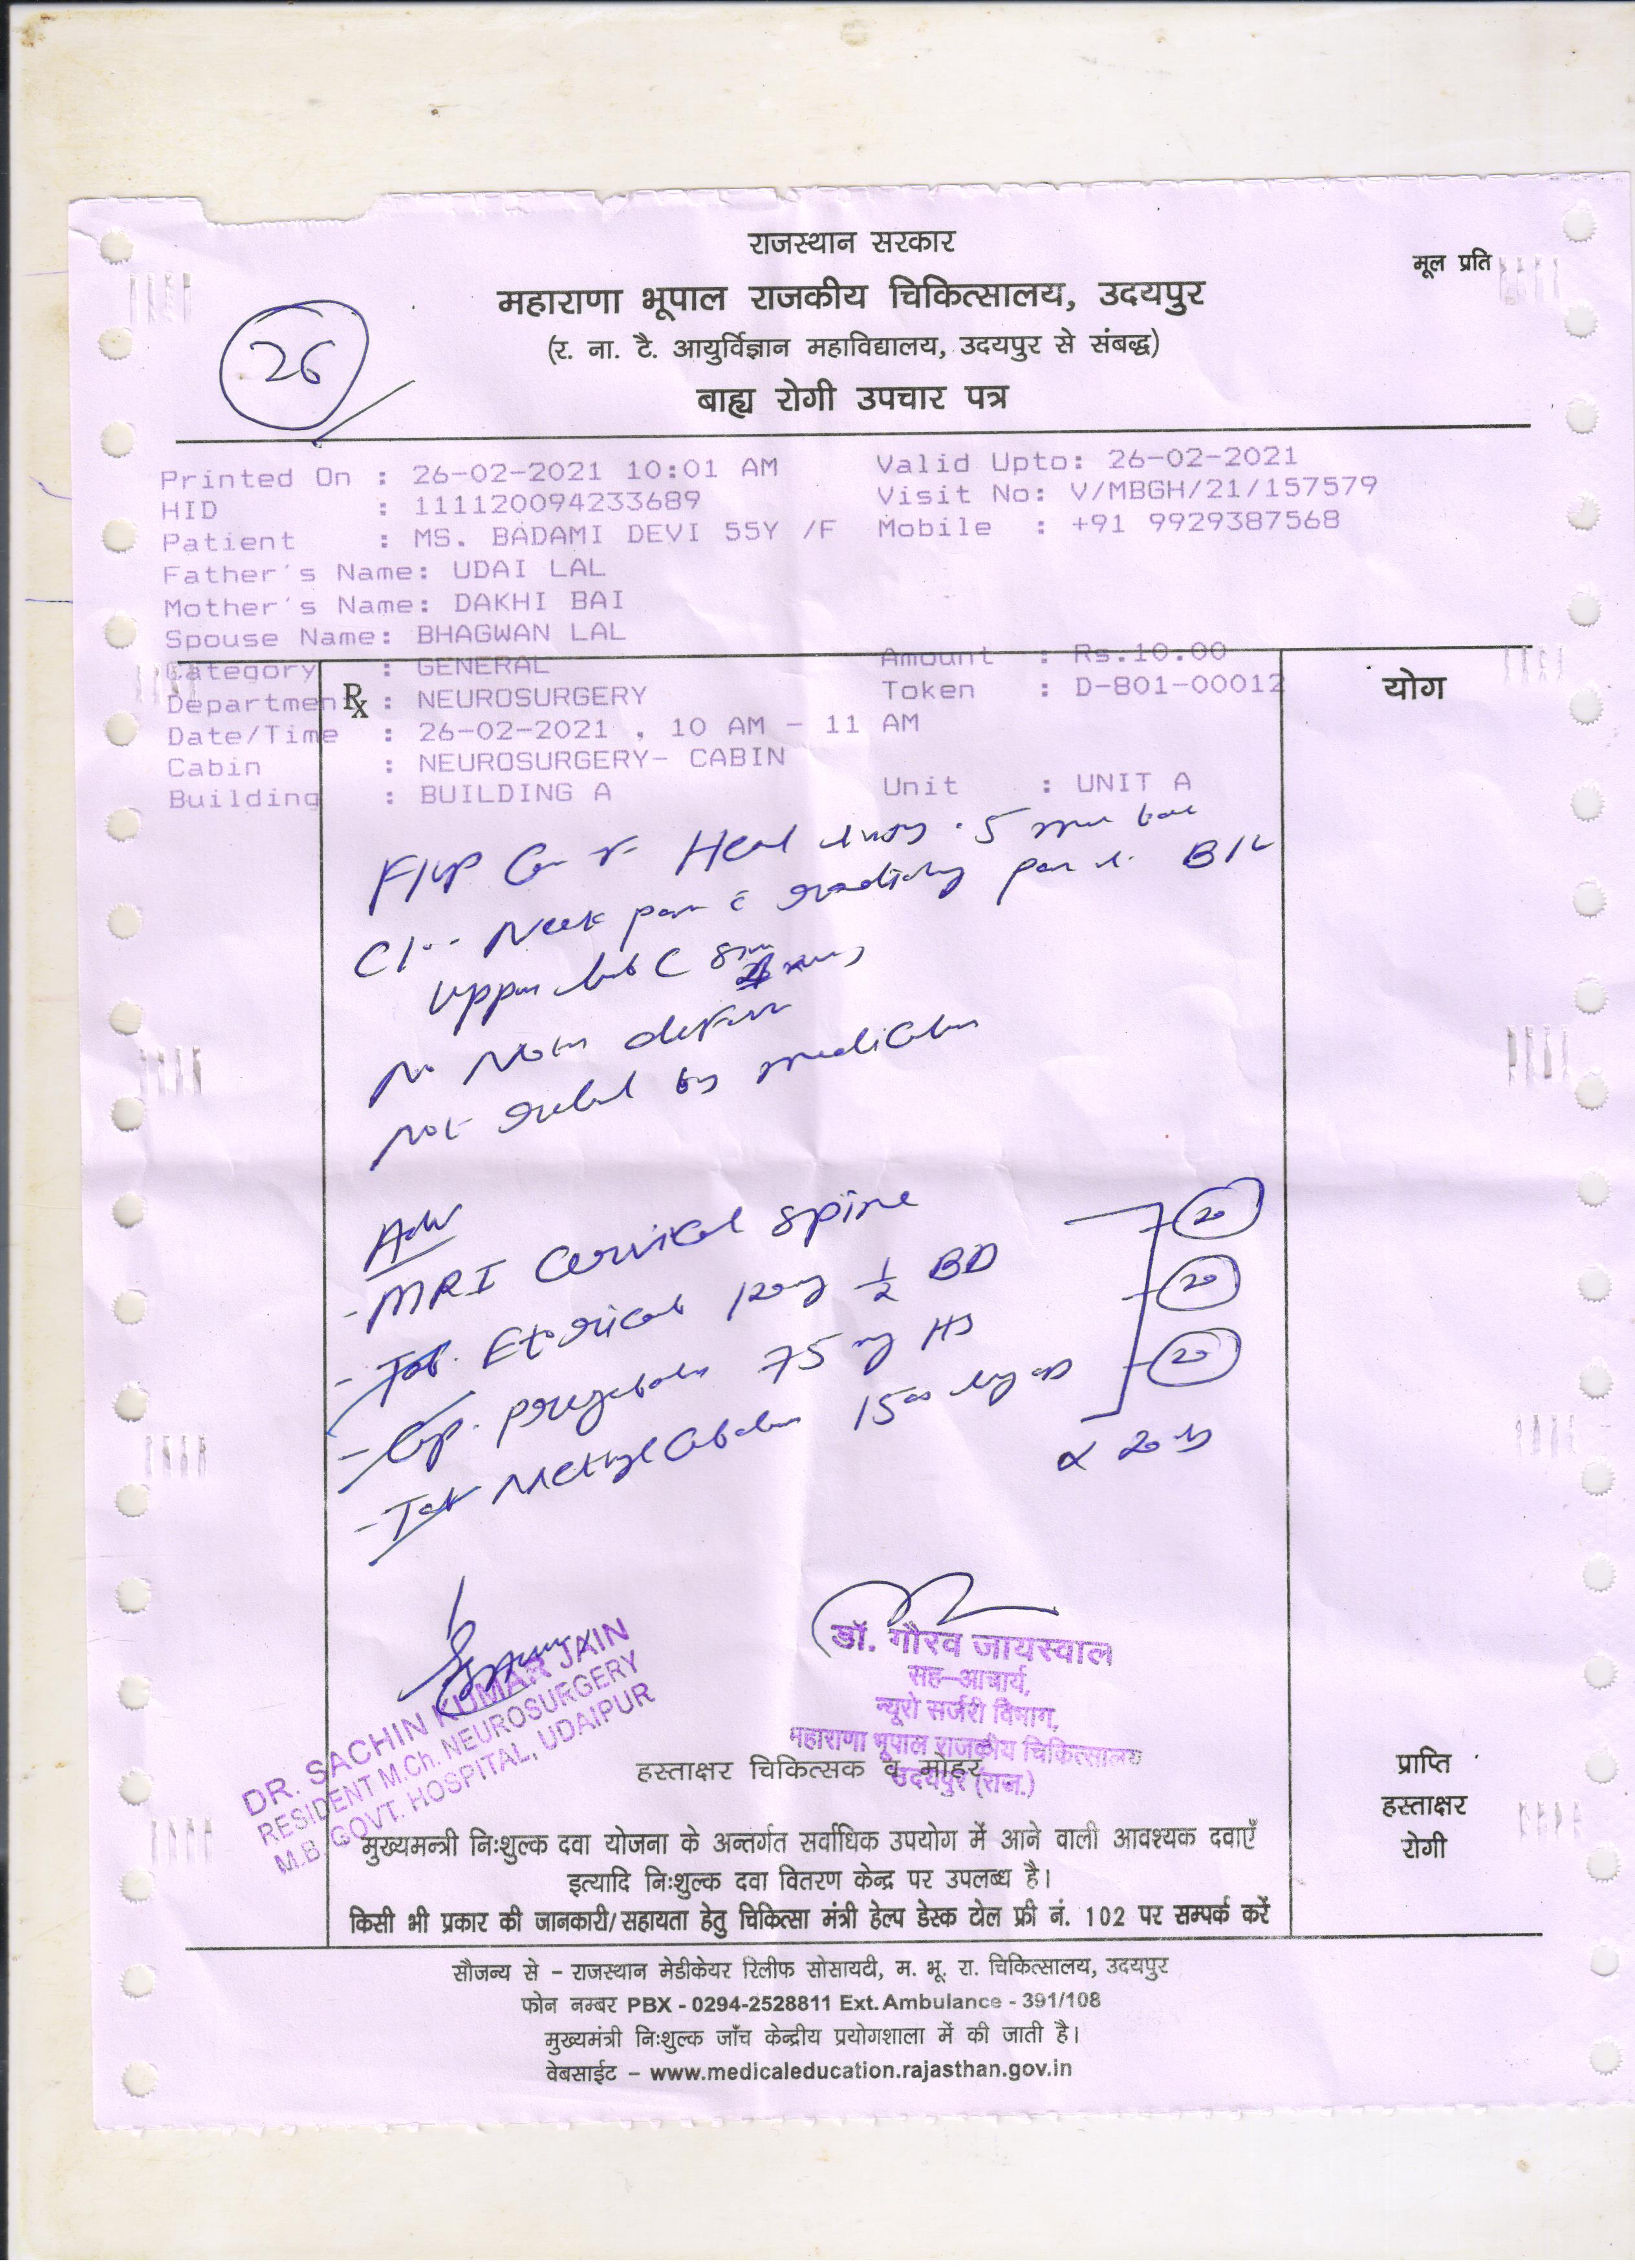 राजस्थान सरकार
मूल प्रति
महाराणा भूपाल राजकीय चिकित्सालय, उदयपुर
(र. ना. टै. आयुर्विज्ञान महाविद्यालय, उदयपुर से संबद्ध)
26
बाह्य रोगी उपचार पत्र
Printed On : 26-02-2021 10:01 AM Valid Upto: 26-02-2021
HID : 111120094233689 Visit No: V/MBGH/21/157579
Patient : MS. BADAMI DEVI 55Y /F Mobile : +91 9929387568
Father's Name: UDAI LAL
Mother's Name: DAKHI BAI
Spouse Name: BHAGWAN LAL
Category : GENERAL Amount : Rs.10.00
Department : NEUROSURGERY Token : D-B01-00012
Rx
योग
Date/Time : 26-02-2021 , 10 AM - 11 AM
Cabin : NEUROSURGERY- CABIN
Building : BUILDING A Unit : UNIT A
F/up Head 5
C/o - Neck pain c radiating pain B/L
upper limb c
No
Not by medication
Adv
- MRI Cervical spine 20
- Tab. Etoricoxib 120mg 1/2 BD 20
- Cap. pregabalin 75 mg HS 20
- Tab Methylcobalamin 1500 OD
x 20
डॉ. गौरव जायस्वाल
सह-आचार्य,
न्यूरो सर्जरी विभाग,
महाराणा भूपाल राजकीय चिकित्सालय
उदयपुर (राज.)
DR. SACHIN KUMAR JAIN
RESIDENT M.Ch. NEUROSURGERY
M.B. GOVT. HOSPITAL, UDAIPUR
हस्ताक्षर चिकित्सक व मोहर
प्राप्ति
हस्ताक्षर
रोगी
मुख्यमन्त्री निःशुल्क दवा योजना के अन्तर्गत सर्वाधिक उपयोग में आने वाली आवश्यक दवाएँ
इत्यादि निःशुल्क दवा वितरण केन्द्र पर उपलब्ध है।
किसी भी प्रकार की जानकारी/सहायता हेतु चिकित्सा मंत्री हेल्प डेस्क टोल फ्री नं. 102 पर सम्पर्क करें
सौजन्य से - राजस्थान मेडीकेयर रिलीफ सोसायटी, म. भू. रा. चिकित्सालय, उदयपुर
फोन नम्बर PBX - 0294-2528811 Ext. Ambulance - 391/108
मुख्यमंत्री निःशुल्क जाँच केन्द्रीय प्रयोगशाला में की जाती है।
वेबसाईट - www.medicaleducation.rajasthan.gov.in